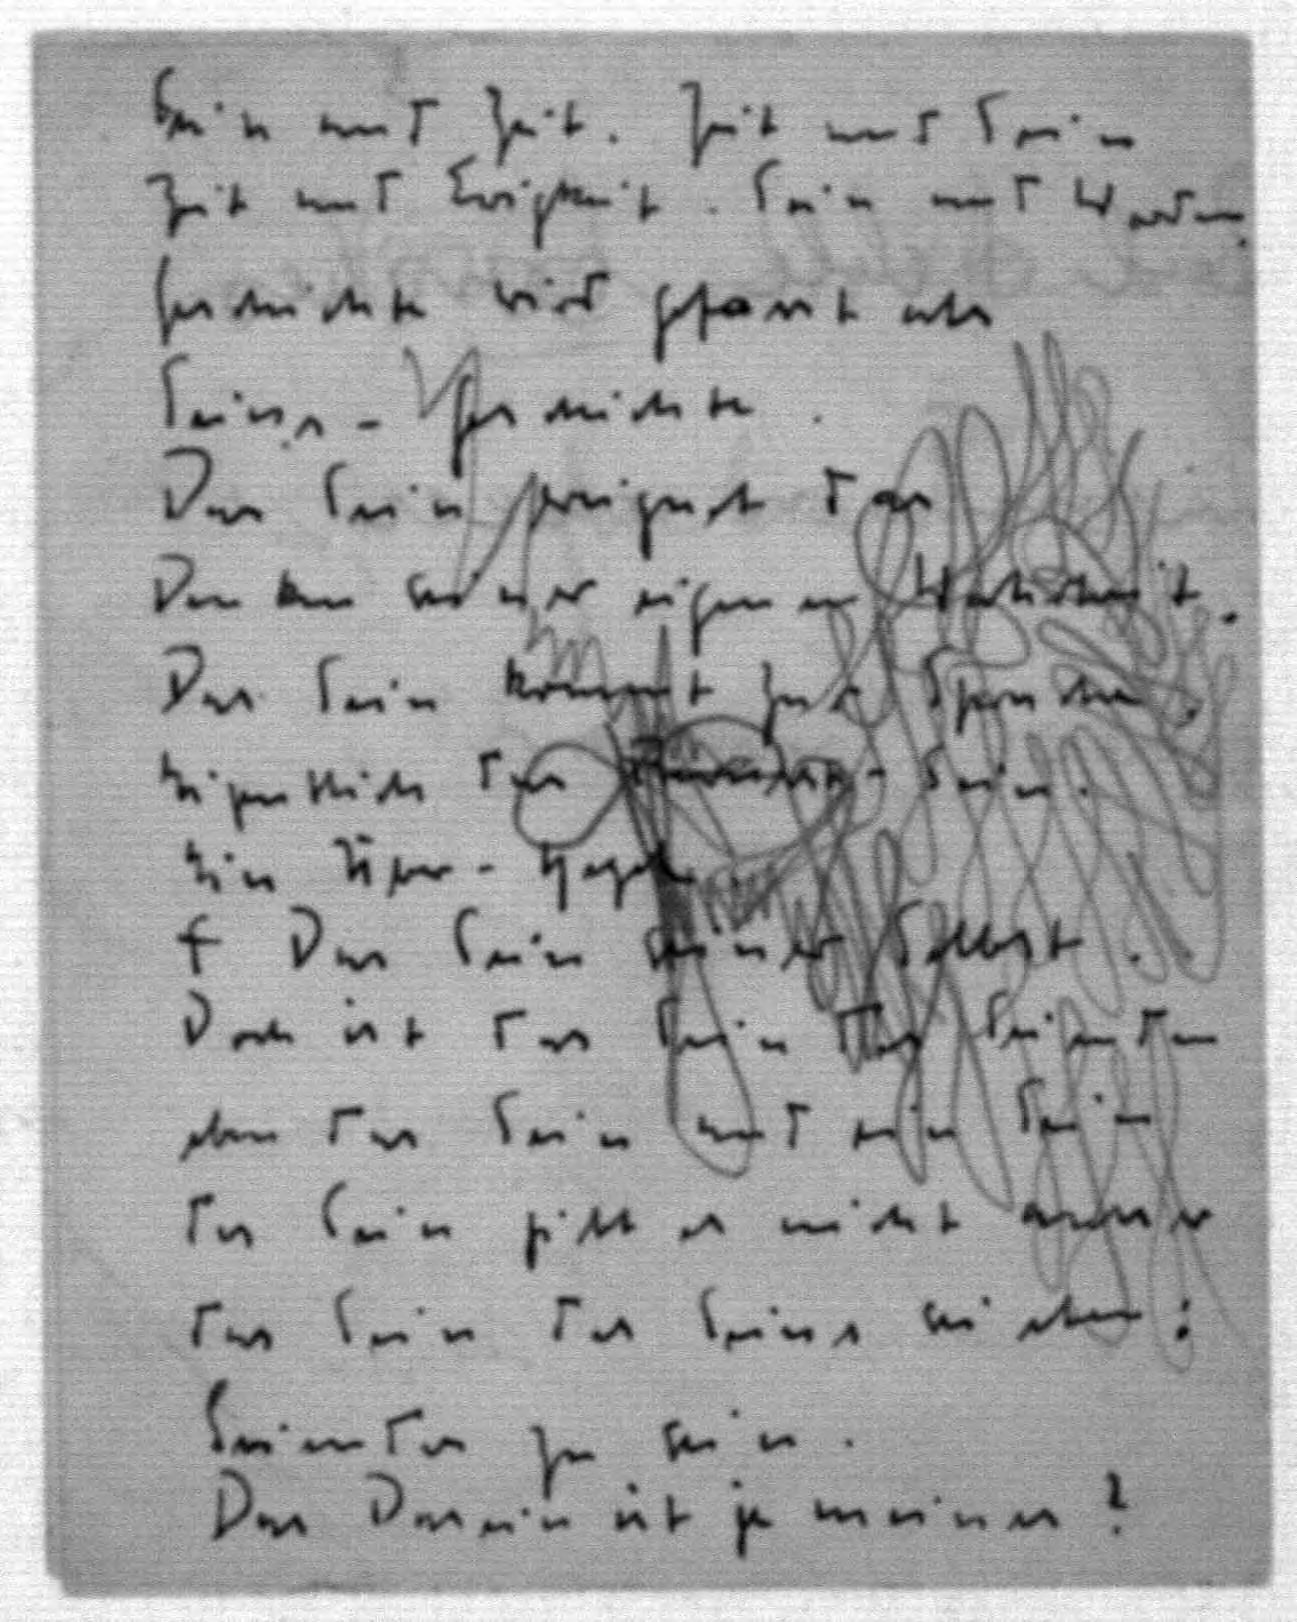 Sein und Zeit. Zeit und Sein
Zeit und Ewigkeit. Sein und Werden.
Geschichte wird gefasst als
Seins-Geschichte.
Das Sein ereignet das
Denken seiner eigenen Wahrheit.
Das Sein kommt zur Sprache,
eigentlich das -Sein.
Ein Über-Hegel.
+ Das Sein seiner Selbst.
Doch ist das Sein des Seienden
eben das Sein und ein Sein
des Sein gibt es nicht ausser
das Sein des Seins sei eben:
Seiendes zu sein.
Das Dasein ist je meines?